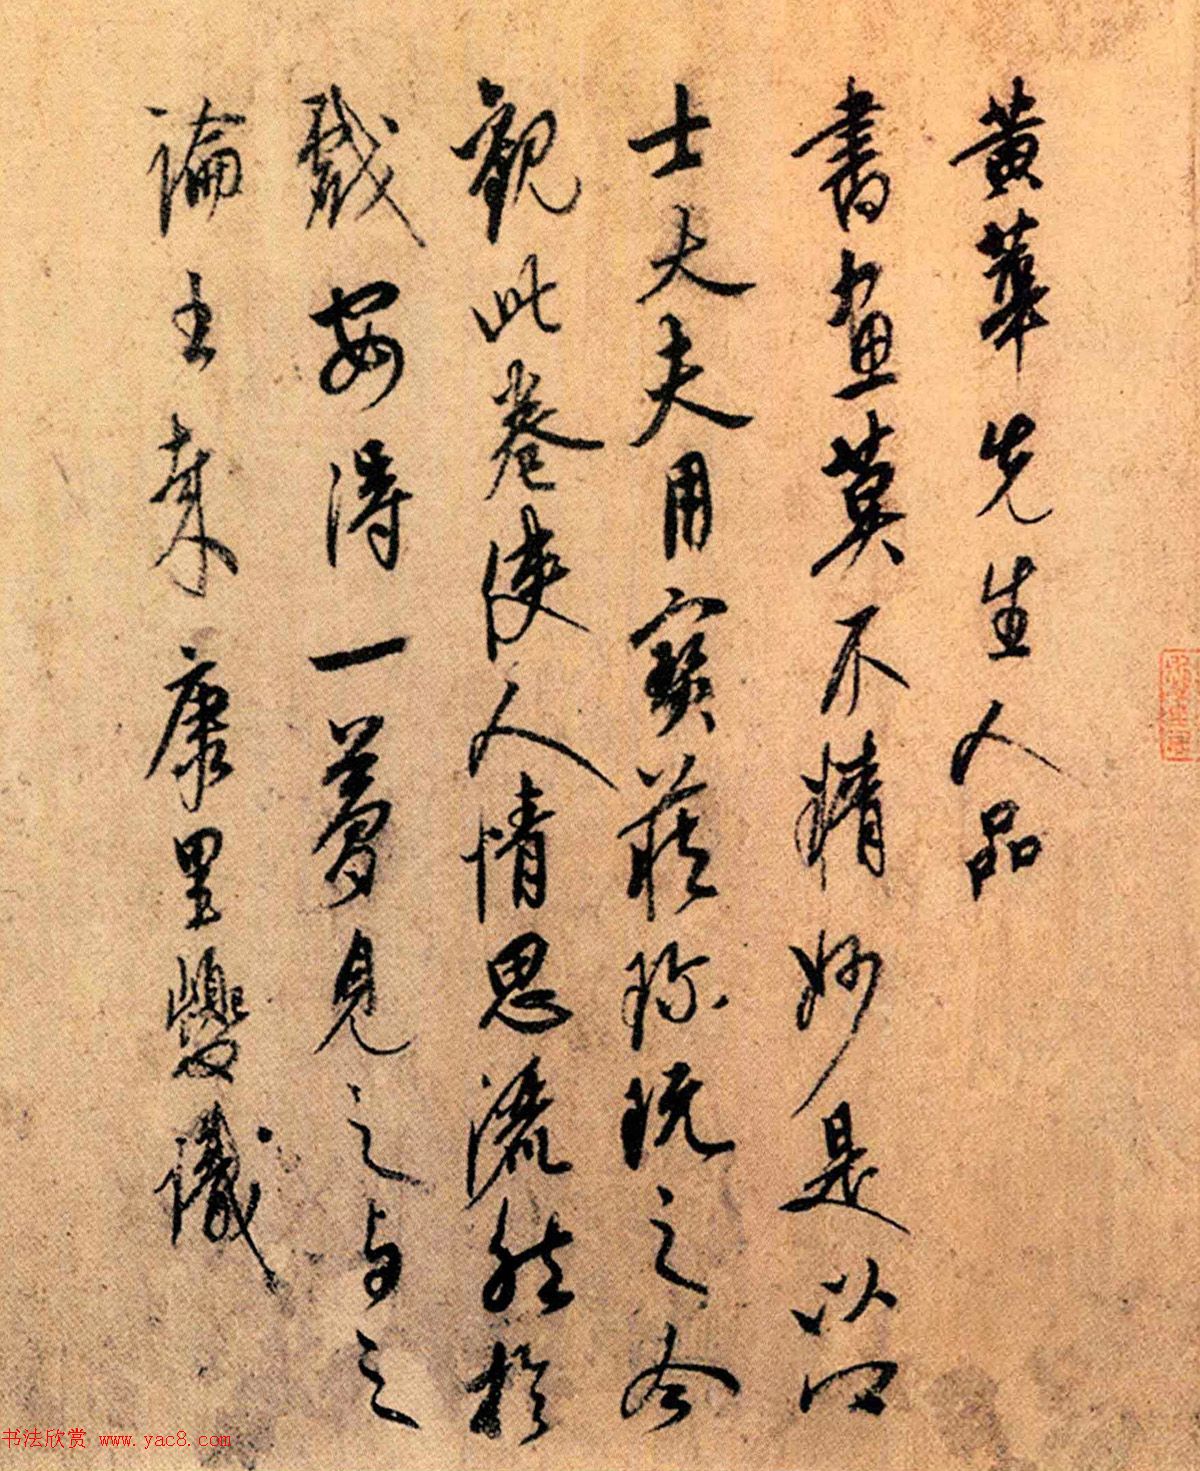 黄華先生人品
書畫莫不精妙是以
士大夫用寶藏珎玩之今
觀此卷使人情思灑然於
戲安得一夢見之与之
論 康里巎識
书法欣赏 www.yac8.com